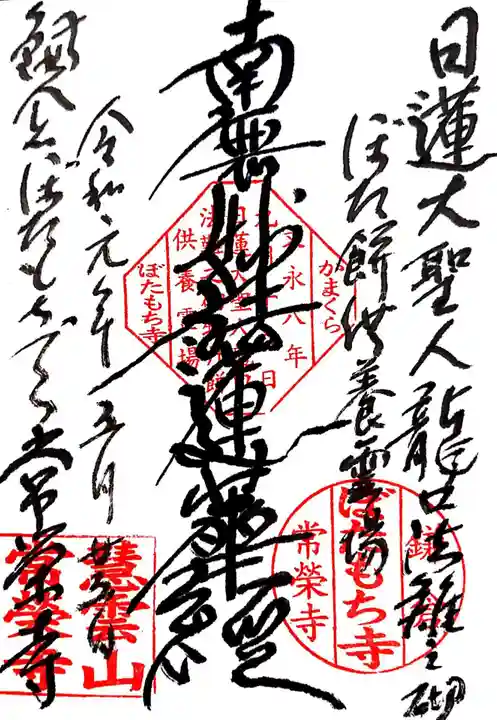 日蓮大聖人龍口法難之砌
ぼた餅供養霊場
南無妙法蓮華経
令和元年五月
鎌倉ぼたもちでら常栄寺
かまくら
文永八年
供養霊場
ぼたもち寺
ぼたもち寺
常榮寺
慧雲山
常榮寺